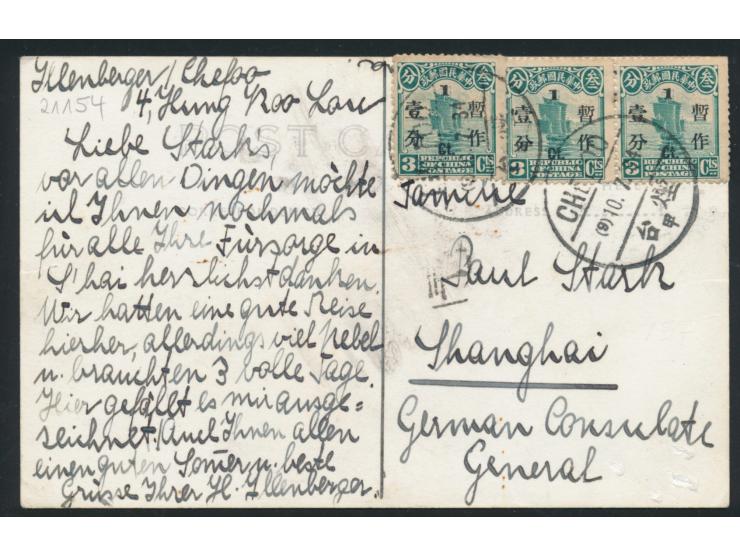 Illenberger / Chefoo
4, Hung Koo Lau
21154
Liebe Stark's,
vor allen Dingen möchte
ich Ihnen nochmals
für alle Ihre Fürsorge in
S'hai herzlichst danken.
Wir hatten eine gute Reise
hierher, allerdings viel Nebel
u. brauchten 3 volle Tage.
Hier gefällt es mir ausge=
zeichnet. Auch Ihnen allen
einen guten Som̄er u. beste
Grüsse Ihrer H. Illenberger.
POST C
分 中華民國郵政 叁
1
暫作
壹分
Ct.
3 REPUBLIC OF CHINA POSTAGE Cts
分 中華民國郵政 叁
1
暫作
壹分
Ct.
3 REPUBLIC OF CHINA POSTAGE Cts
分 中華民國郵政 叁
1
暫作
壹分
Ct.
3 REPUBLIC OF CHINA POSTAGE Cts
CHE
(9) 10.
台 甲
Familie
Paul Stark
Shanghai
German Consulate
General